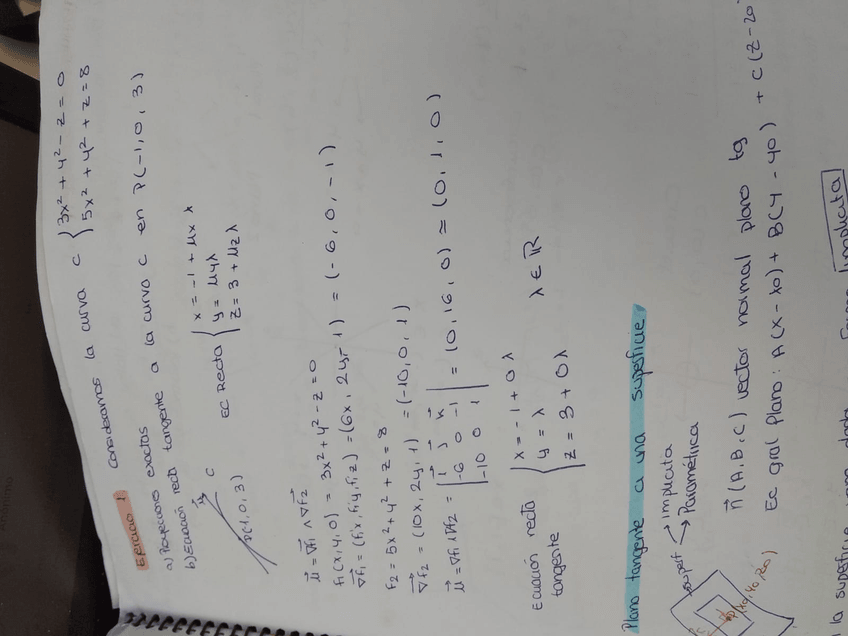 Ejercicio 1 Consideramos la curva C { 3x² + y² - z = 0
5x² + y² + z = 8
a) Proyecciones exactas
b) Ecuación recta tangente a la curva C en P(-1, 0, 3)
μ⃗ C
P(1, 0, 3)
EC Recta { x = -1 + μx λ
y = μy λ
z = 3 + μz λ
μ⃗ = ∇⃗f1 ∧ ∇⃗f2
f1(x, y, 0) = 3x² + y² - z = 0
∇⃗f1 = (f'x, f'y, f'z) = (6x, 2y, -1) = (-6, 0, -1)
f2 = 5x² + y² + z = 8
∇⃗f2 = (10x, 2y, 1) = (-10, 0, 1)
μ⃗ = ∇⃗f1 ∧ ∇⃗f2 = | i⃗ j⃗ k⃗ |
| -6 0 -1 | = (0, 16, 0) ≃ (0, 1, 0)
| -10 0 1 |
Ecuación recta tangente { x = -1 + 0λ
y = λ λ ∈ ℝ
z = 3 + 0λ
Plano tangente a una superficie
superf → Implícita
→ Paramétrica
(x0, y0, z0)
n⃗ (A, B, C) vector normal plano tg
Ec gral plano: A(x - x0) + B(y - y0) + C(z - z0
la superficie
implícita